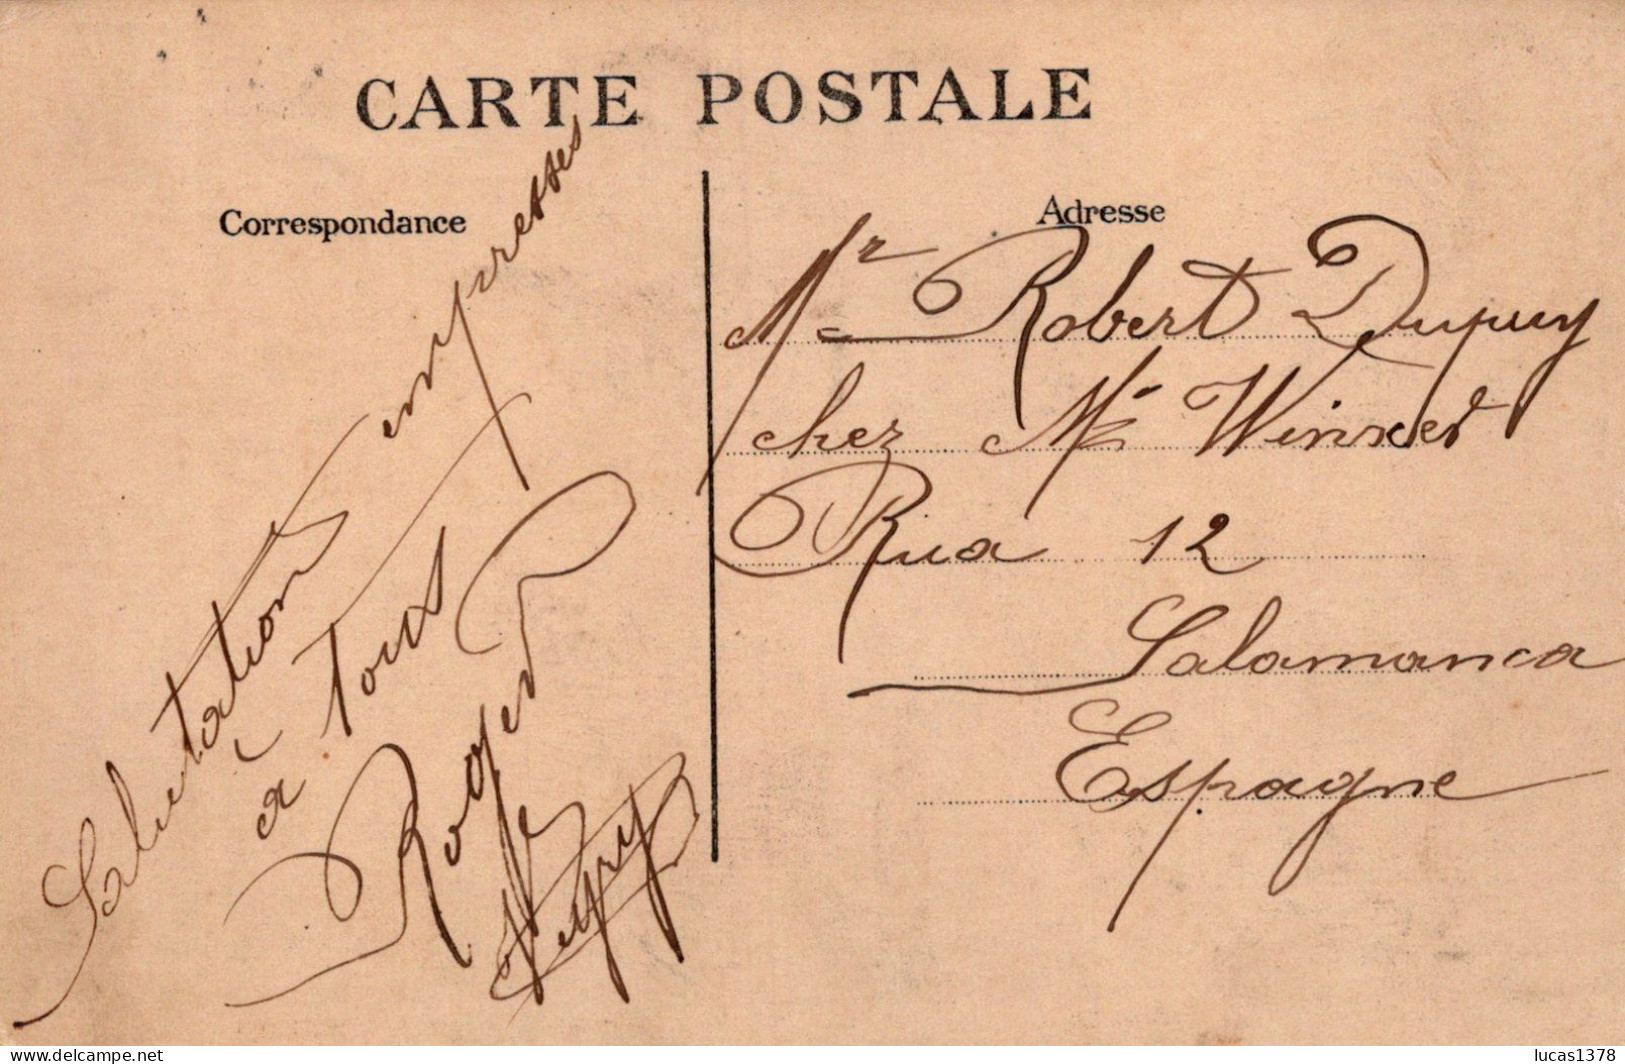 CARTE POSTALE
Correspondance
Salutation empresses
à Tous
Roger
Adresse
Mr Robert Dupuy
chez Mr
Rua 12
Salamanca
Espagne
lucas1378